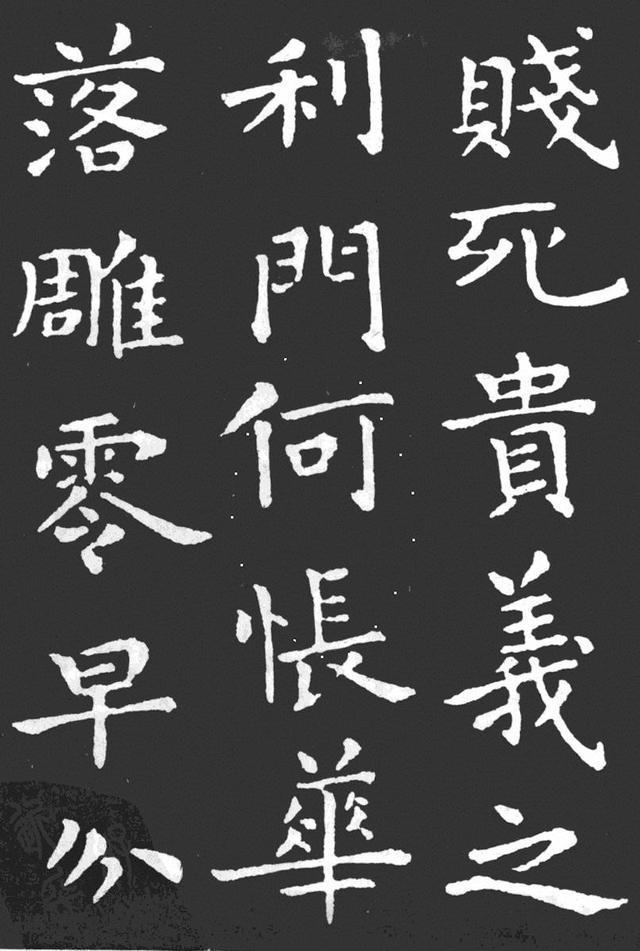 賤死貴義之
利門何悵華
落雕零早